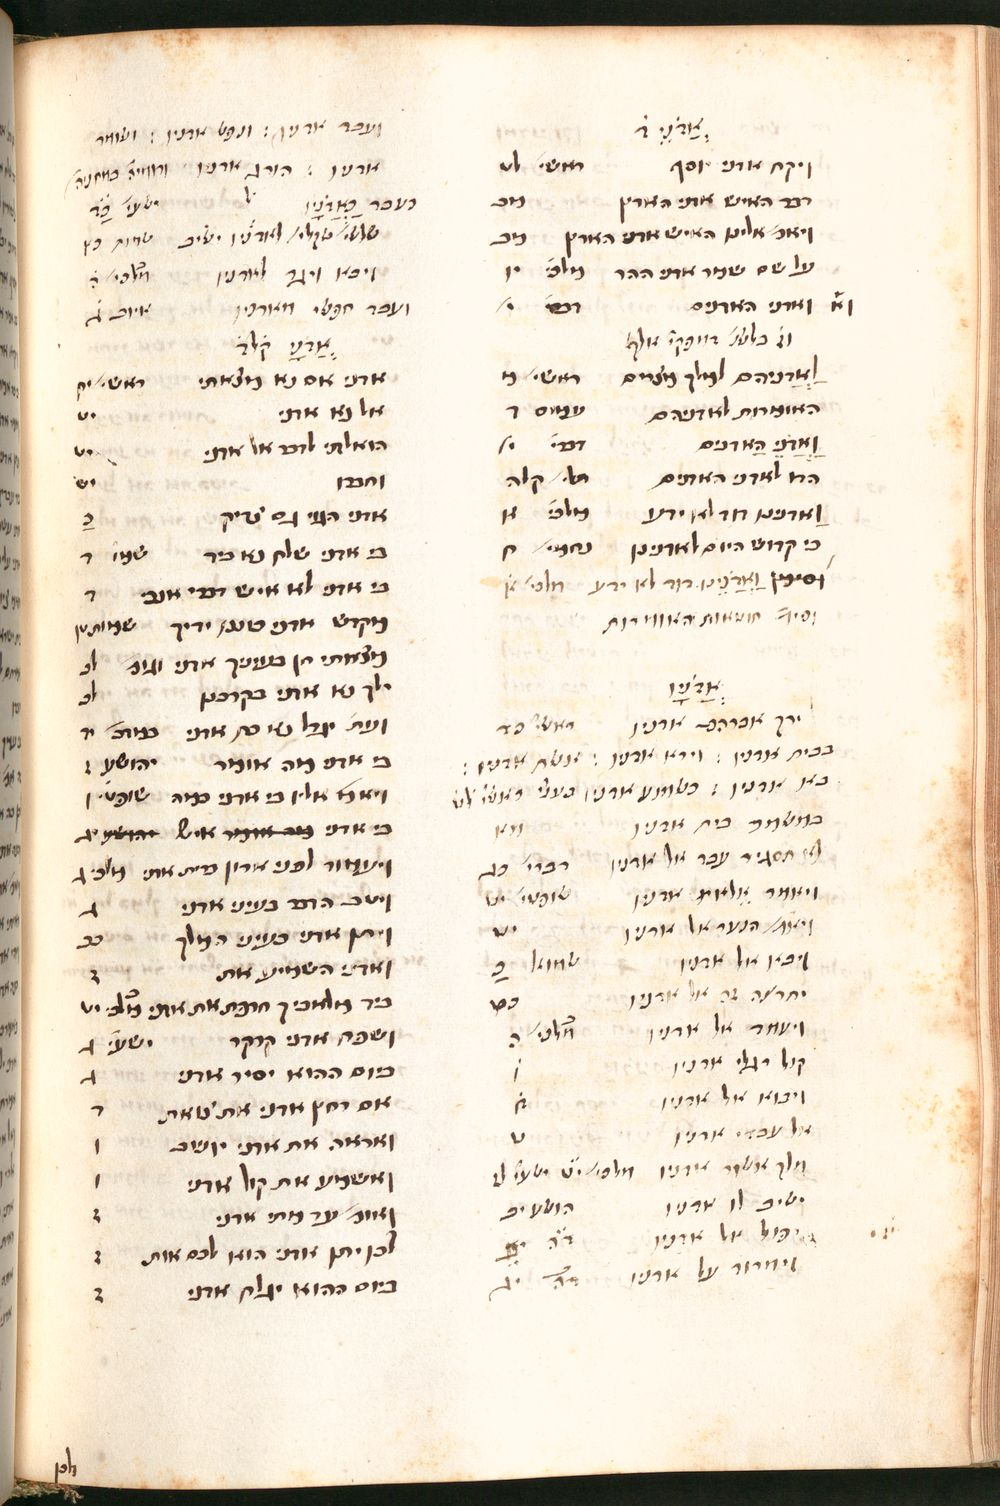 אֲדֹנֵי ד
ויקח אדני יוסף ראשי לט
דבר האיש אדני הארץ מב
ויאמ׳ אלינו האיש אדני הארץ מב
על שם שמר אדני ההר מלכי יו
ואדני האדנים דברי י׳
לַאֲדֹניהם למלך מצרים ראשי מ
האומרות לאדניהם עמוס ד
וַאֲדֹנֵי האדנים דברי י׳
הודו לאדני האדנים תלי׳ קלה
וַאדנינו דוד לא ידע מלכי א
כי קדוש היום לאדנינו נחמי׳ ח
וסימן וַאֲדֹנֵינו דוד לא ידע מלכי א
אֲדֹנָיו
ירך אברהם אדניו ראשי כד
בבית אדניו : וירא אדניו : אשת אדניו :
בא אדניו : כשמוע אדניו ראשי לט
במשמר בית אדניו מא
לא תסגיר עבד אל אדניו דברי כג
ויאמר אליו אדניו שופטי יט
ויאמ׳ הנער אל אדניו יט
ויבאו אל אדניו שמוא כ
יתרצה זה אל אדניו כט
ויעמד אל אדניו מלכי׳ ה
קול רגלי אדניו ו
ויבוא אל אדניו ח
אל עבדי אדניו ט
מלך אשור אדניו מלכי׳ יט ישעי לז
ישיב לו אדניו הושע יב
יפול אל אדניו ד״ה יב
וימרוד על אדניו ד״ה יג
ועבד אדניו : ונפש אדניו : ושומר
אדניו : הורג אדניו
כעבד כַּאדֹנָיו ישעי כד
שלשי׳ שקלי׳ לאדניו ישיב שמות כא
ויבא ויגד לאדניו מלכי׳ ה
ועבד חפשי מאדניו איוב ג
אֲדֹנָי קלד
אדני אם נא מצאתי ראשי׳ יח
אל נא אדני יט
הואלתי לדבר אל אדני יט
וחברו יט
אדני הגוי גם צדיק כ
בי אדני שלח נא ביד שמו׳ ד
בי אדני לא איש דברי אנכי ד
מקדש אדני כוננו ידיך שמות טו
מצאתי חן בעיניך אדני לד
ילך נא אדני בקרבנו לד
ועת׳ יגדל נא כח אדני במדב׳ יד
בי אדני מה אומר יהושע ז
ויאמ׳ אליו בי אדני במה שופטי ו
בי אדני איש יג
ויעמוד לפני ארון ברית אדני מלכי ג
וייטב הדבר בעיני אדני ג
ויתן אדני בעיני המלך כב
ואדני השמיע את ז
ביד מלאכיך חרפת את אדני מלכי יט
ושפח אדני קדקד ישעי׳ ג
ביום ההוא יסיר אדני ג
אם רחץ אדני את צאת ד
ואראה את אדני יושב ו
ואשמע את קול אדני ו
ואומ׳ עד מתי אדני ו
לכן יתן אדני הוא לכם אות ז
ביום ההוא יגלח אדני ז